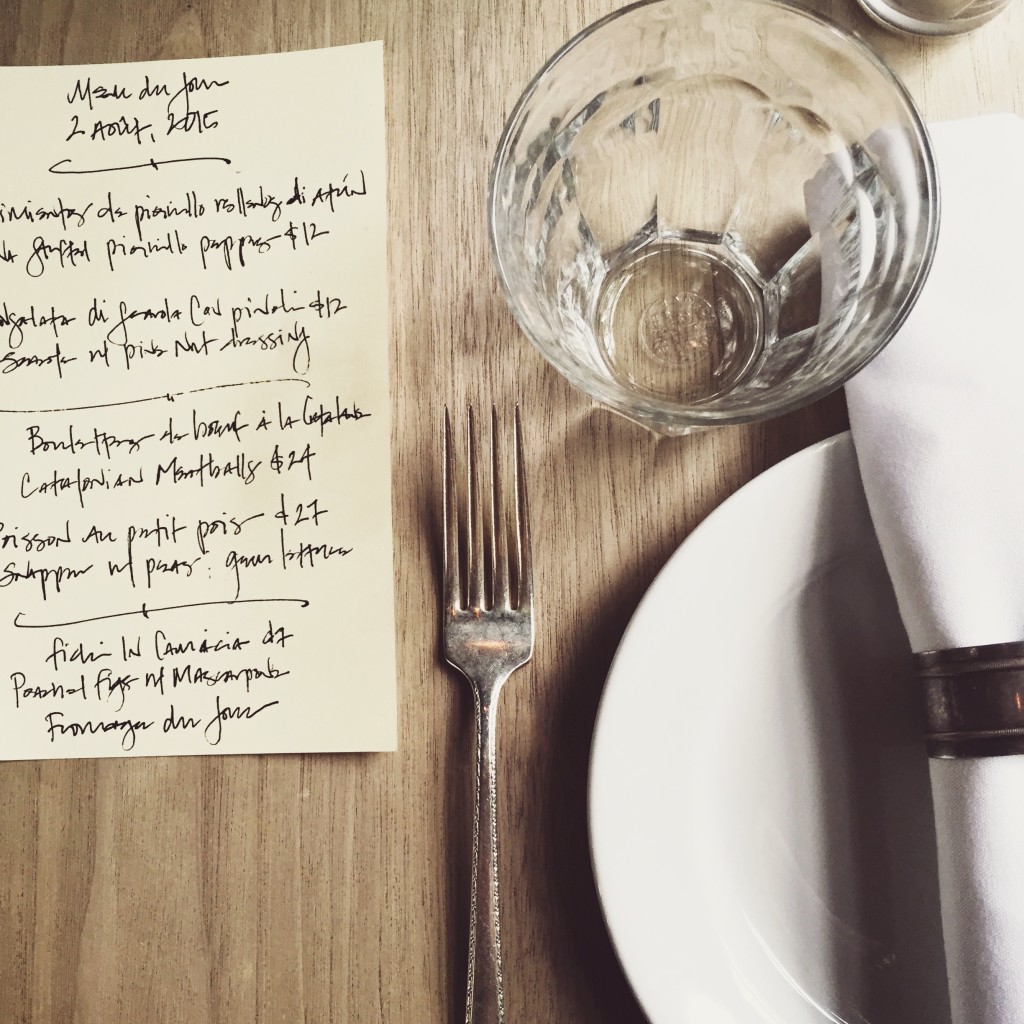 Menu du Jour
2 Août, 2015
imientos de piquillo rellenos di Atún
Na stuffed piquillo peppers $12
nsalata di Con pinoli $12
w/ pine Nut dressing
Boulettes de boeuf à la Catalane
CATALONIAN MEATballs $24
Poisson Au petit pois $27
Snapper w/ peas : gem lettuce
fichi IN Camicia $7
Poached figs w/ Mascarpone
Fromages du Jour